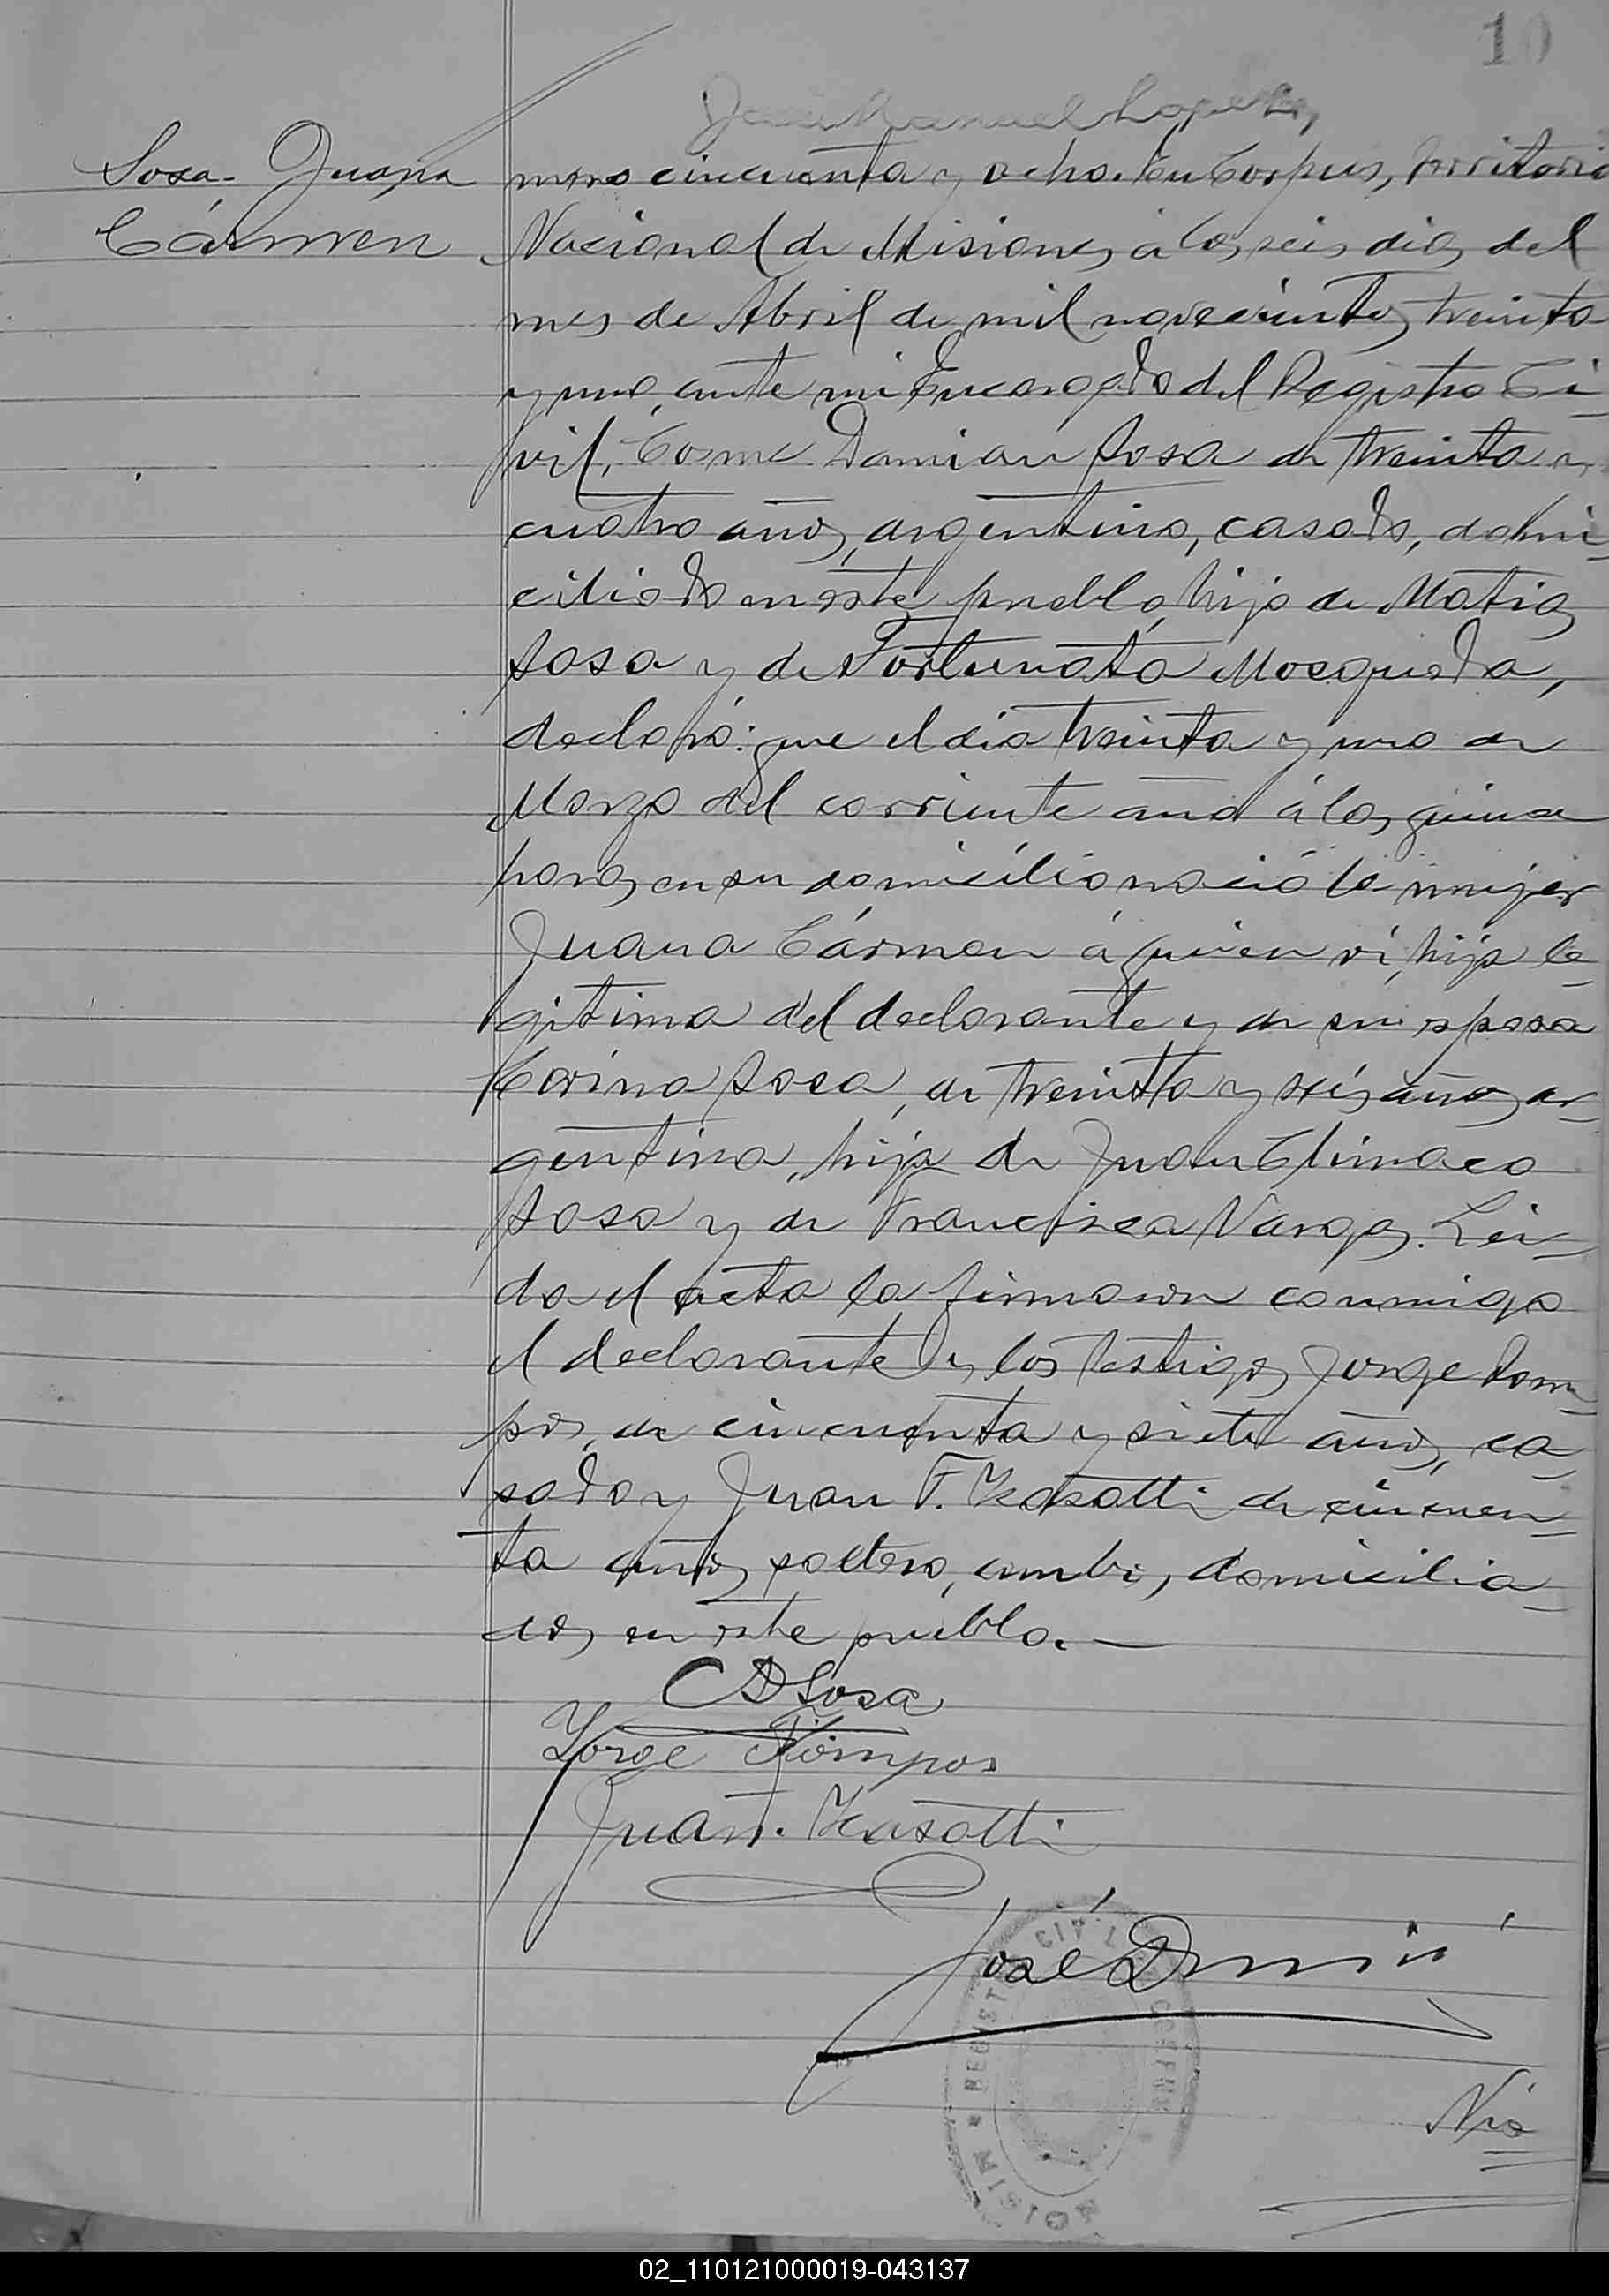 10
José Manuel Lopez
Sosa - Juana
Cármen
mero cincuenta y ocho. En Corpus, territorio
Nacional de Misiones, á los seis dias del
mes de Abril de mil novecientos treinta
y uno, ante mi Encargado del Registro Ci-
vil, Cosme Damian Sosa de treinta y
cuatro años, argentino, casado, domi-
ciliado en este pueblo, hijo de Matias
Sosa y de Fortunata Mosqueda,
declaró: que el dia treinta y uno de
Marzo del corriente año á las quince
horas, en su domicilio nació la mujer
Juana Cármen á quien vi, hija le-
gitima del declarante y de su esposa
Corina Sosa, de treinta y seis años, ar-
gentina, hija de Juan Climaco
Sosa y de Francisca Vargas. Lei-
da el acta la firmaron conmigo
el declarante y los testigos Jorge Tom-
pos, de cincuenta y siete años, ca-
sado y Juan F. Kasotti de cincuen-
ta años, soltero, ambos domicilia-
dos en este pueblo. —
C D Sosa
Jorge Tompos
Juan F. Kasotti
José
REGISTRO CIVIL
CORPUS
MISIONES
02_110121000019-043137